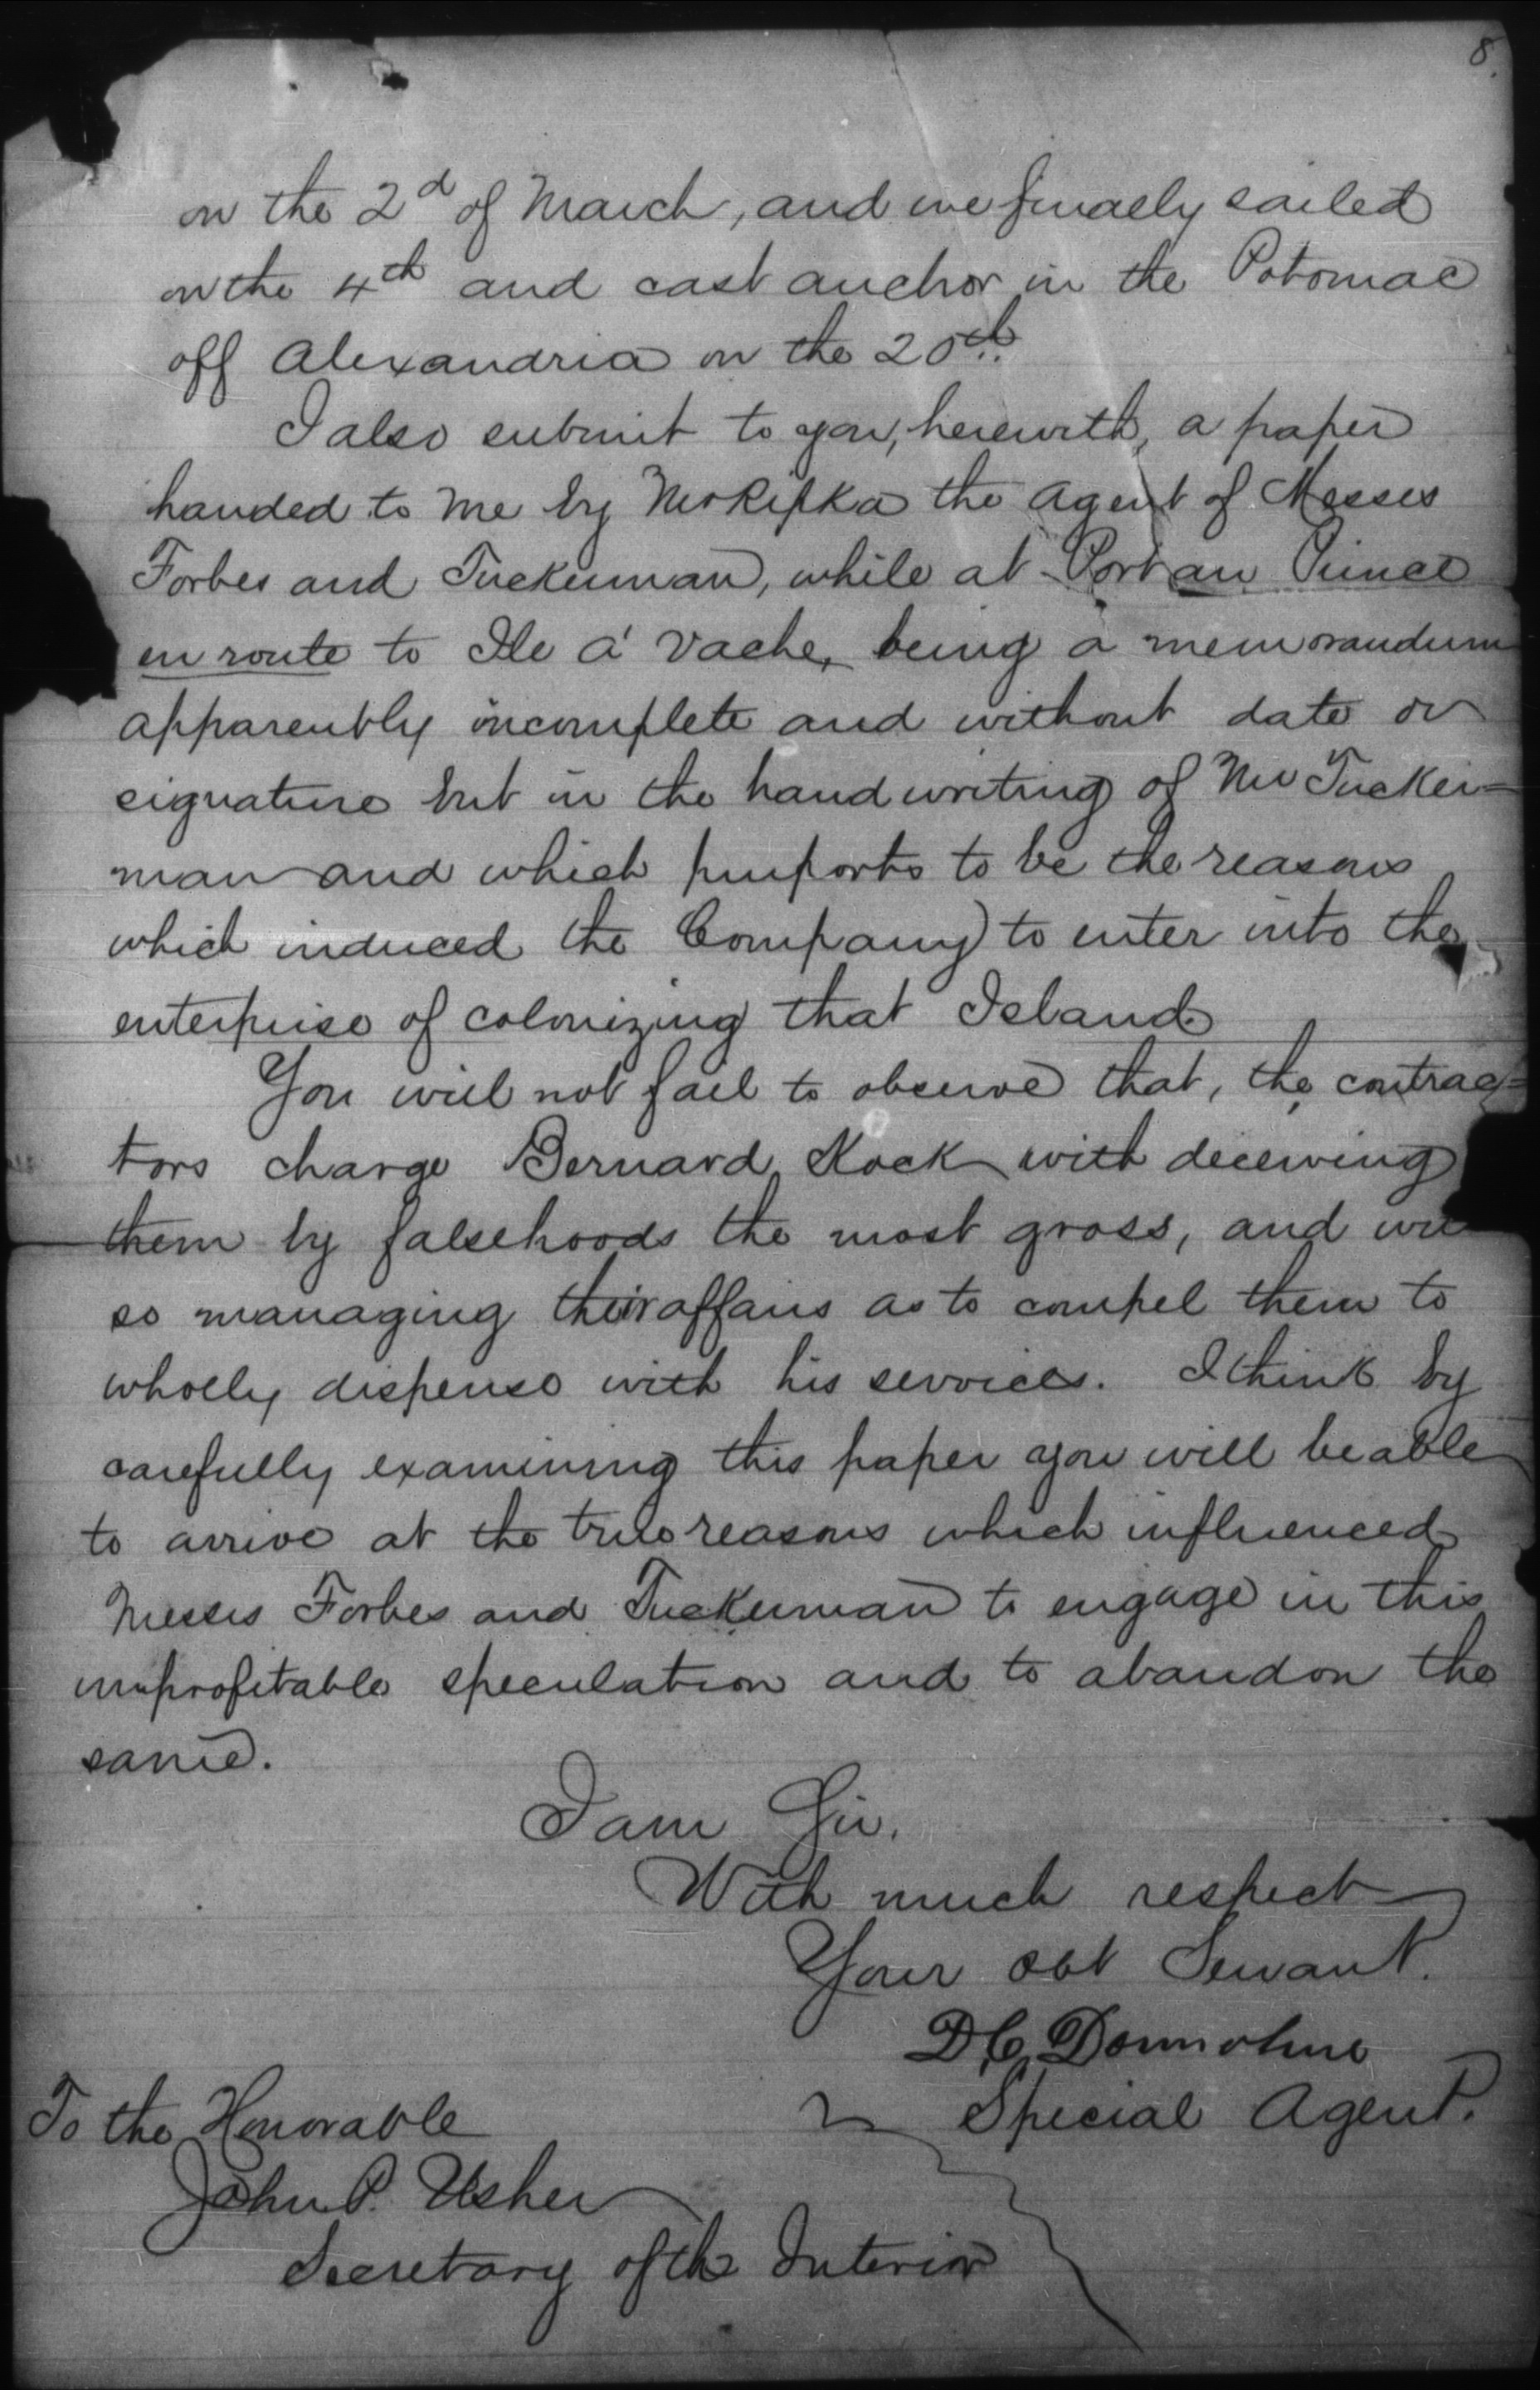 8.
on the 2d of March, and we finally sailed
on the 4th and cast anchor in the Potomac
off Alexandria on the 20th.
I also submit to you, herewith, a paper
handed to me by Mr Ripka the agent of Messrs
Forbes and Tuckerman, while at Port au Prince
en route to Ile á Vache, being a memorandum
apparently incomplete and without date or
signature but in the handwriting of Mr Tucker=
man and which purports to be the reasons
which induced the Company to enter into the
enterprise of colonizing that Island.
You will not fail to observe that, the contrac=
tors charge Bernard Kock with deceiving
them by falsehoods the most gross, and
so managing their affairs as to compel them to
wholly dispense with his services. I think by
carefully examining this paper you will be able
to arrive at the true reasons which influenced
Messrs Forbes and Tuckerman to engage in this
unprofitable speculation and to abandon the
same.
I am Sir,
With much respect
Your obt Servant.
D C Donnohue
Special Agent.
To the Honorable
John P. Usher
Secretary of the Interior